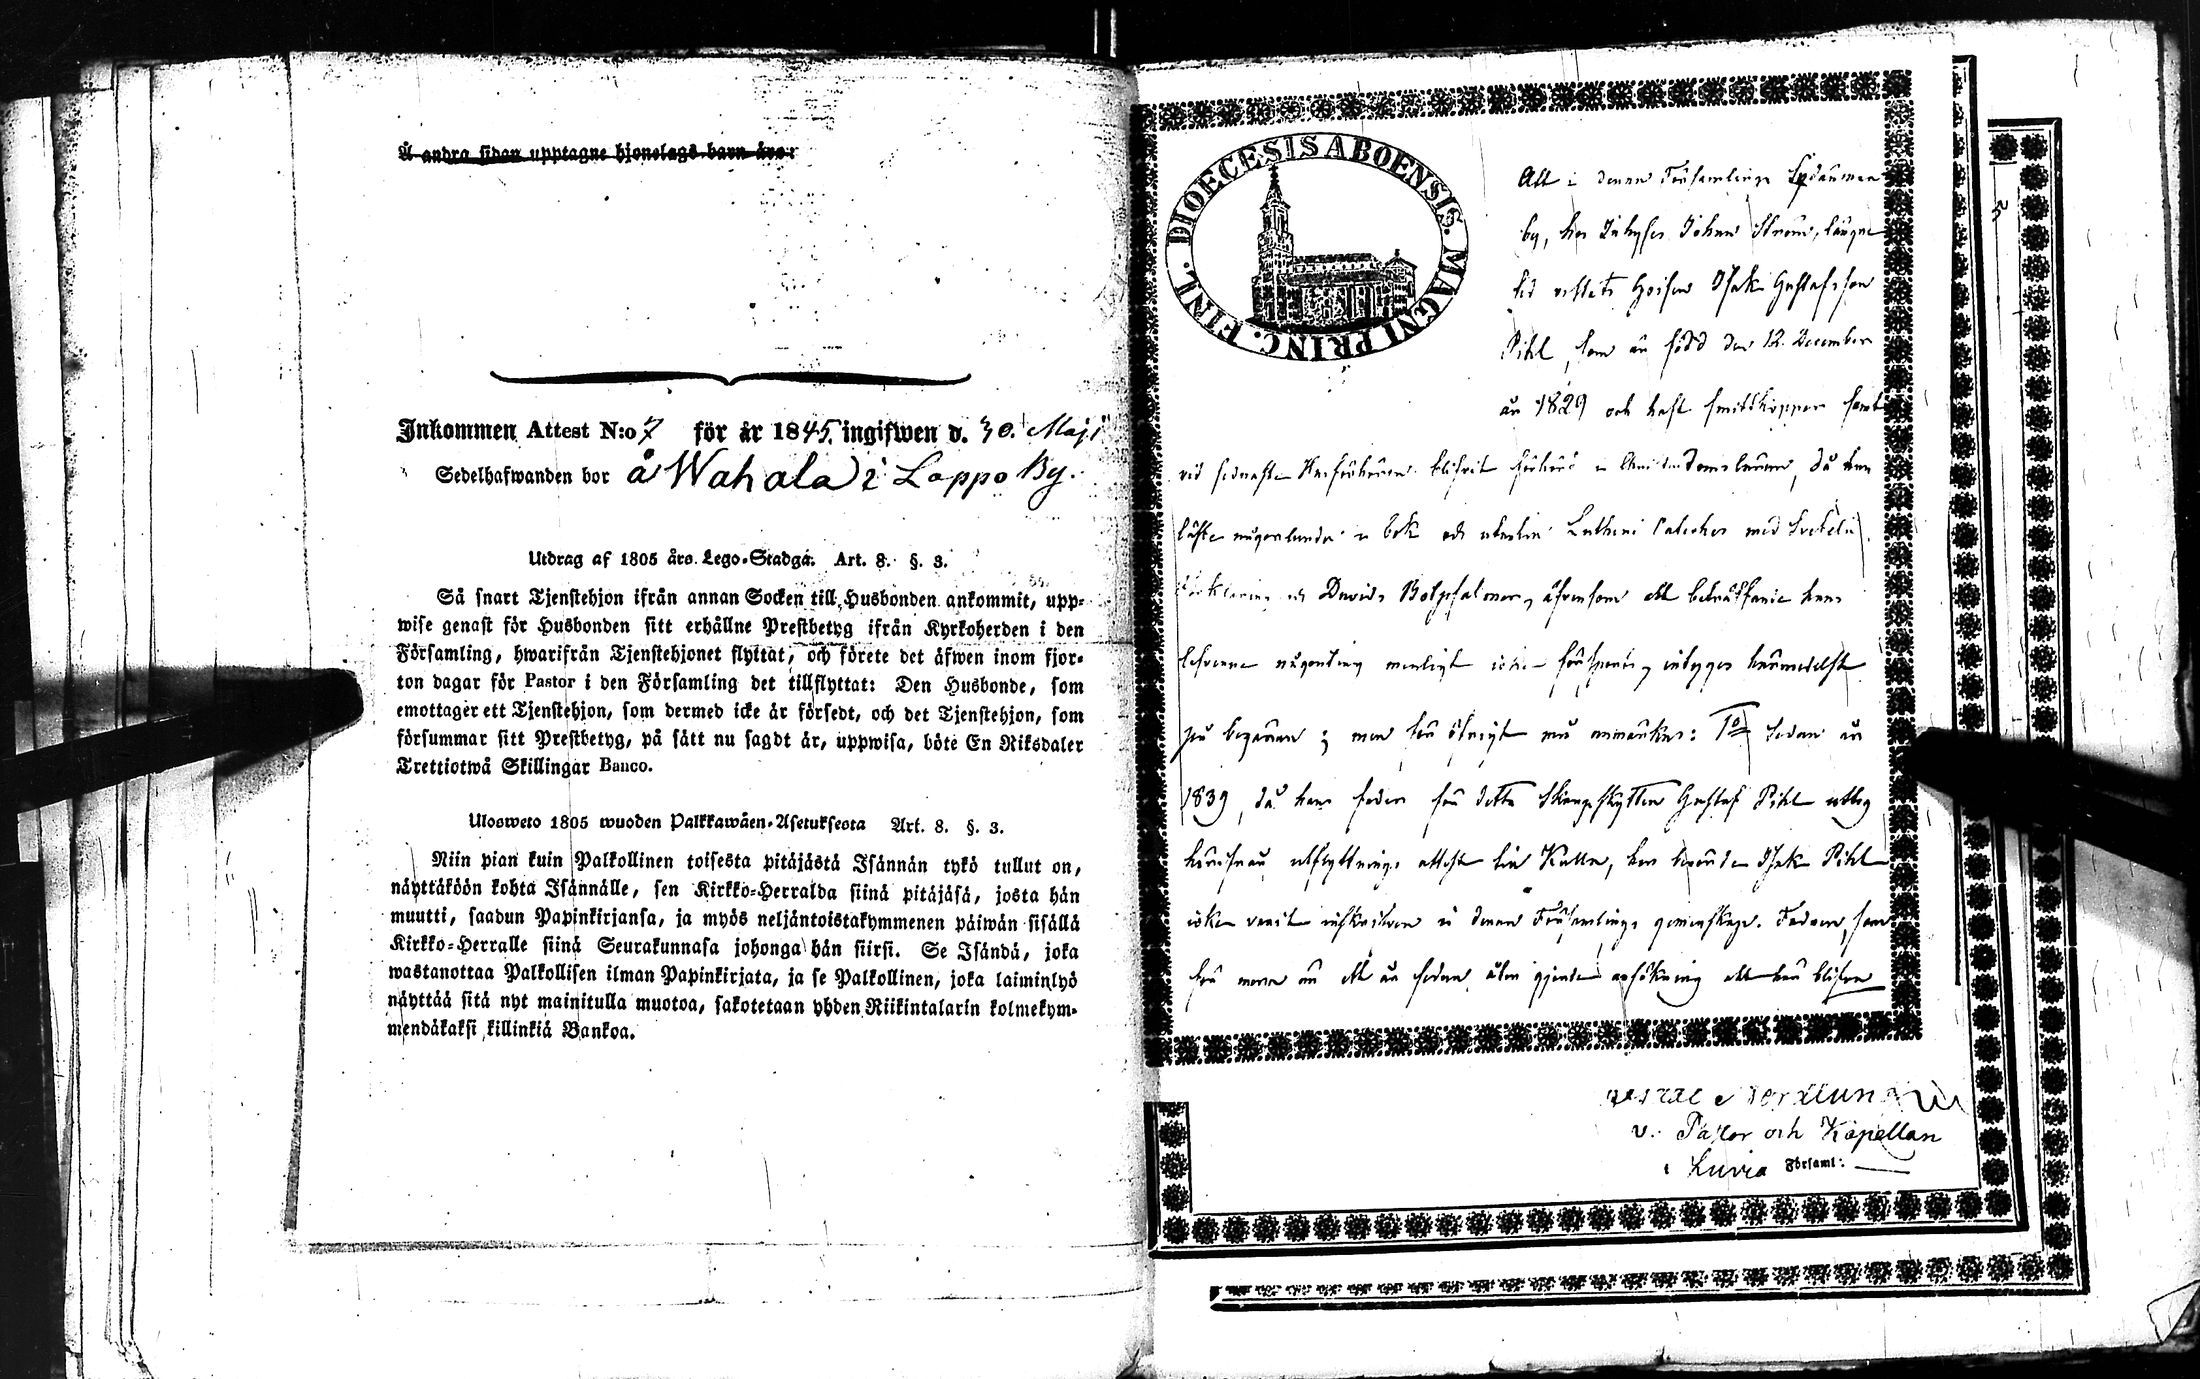 Å andra sidan upptagne hjonelags barn äro:
Inkommen Attest N:o 7 för år 1845. ingifwen d. 30. Maji
Sedelhafwanden bor å Wahala i Lappo By.
Utdrag af 1805 års Lego-Stadga. Art. 8. §. 3.
Så snart Tjenstehjon ifrån annan Socken till Husbonden ankommit, upp-
wise genast för Husbonden sitt erhållne Prestbetyg ifrån Kyrkoherden i den
Församling, hwarifrån Tjenstehjonet flyttat, och förete det äfwen inom fjor-
ton dagar för Pastor i den Församling det tillflyttat: Den Husbonde, som
emottager ett Tjenstehjon, som dermed icke är försedt, och det Tjenstehjon, som
försummar sitt Prestbetyg, på sätt nu sagdt är, uppwisa, böte En Riksdaler
Trettiotwå Skillingar Banco.
Ulosweto 1805 wuoden Palkkawäen-Asetuksesta Art. 8. §. 3.
Niin pian kuin Palkollinen toisesta pitäjästä Isännän tykö tullut on,
näyttäköön kohta Isännälle, sen Kirkko-Herralda siinä pitäjäsä, josta hän
muutti, saadun Papinkirjansa, ja myös neljäntoistakymmenen päiwän sisällä
Kirkko-Herralle siinä Seurakunnasa johonga hän siirsi. Se Isändä, joka
wastanottaa Palkollisen ilman Papinkirjata, ja se Palkollinen, joka laiminlyö
näyttää sitä nyt mainitulla muotoa, sakotetaan yhden Riikintalarin kolmekym-
mendäkaksi killinkiä Bankoa.
DIOECESIS ABOENSIS. MAGNI PRINC. FINL.
Att i denna Församlings
by, hos Inhyses Johan Ström, längre
tid vistats Gossen Isak Gustafsson
Pihl, som är född den 12. December
år 1829 och haft smittkoppor samt
vid sednaste blifvit förhörd i Christendomsläran, då han
läste någorlunda i bok och utantill Lutheri Cateches med Svebelii
förklaring och Davids Botpsalmer, äfvensom att beträffande hans
lefverne någonting menligt icke försports, intygas härmedelst
på begäran; men för öfrigt må anmärkas: 1o sedan år
1839, då hans fader för detta Gustaf Pihl uttog
härifrån utflyttnings attest till Kulla, har berörde Isak Pihl
icke varit inskrifven i denna Församlings gemenskap. Fadren, som
för mera än ett år sedan, äfven gjorde ansökning att här blifva
v. Pastor och Kapellan
i Luvia Församl: